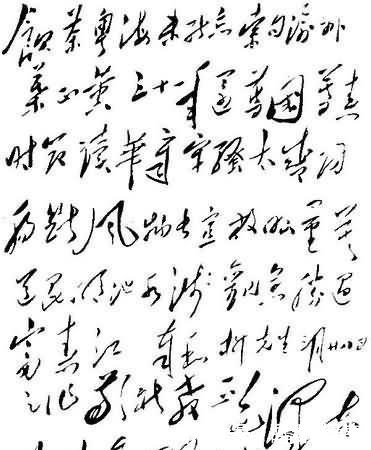 飲茶粵海未能忘索句渝州
葉正黃三十一年還舊國落花
时節讀華章牢騷太盛防
腸斷風物長宜放眼量莫
道昆明池水淺觀魚勝過
富春江 奉和 柳先生 三月廿八日
之作 敬祈教正